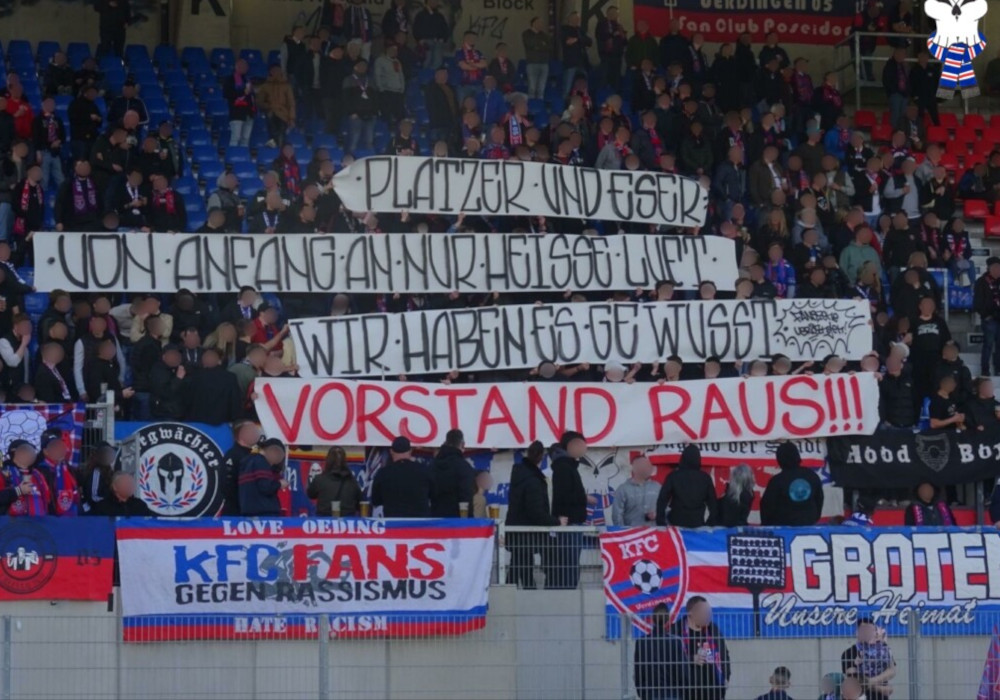 Block
K
UERDINGEN 05
Fan Club Poseidon
·PLATZER·UND ESER·
·VON·ANFANG·AN·NUR·HEISSE·LUFT·
WIR·HABEN·ES·GEWUSST
VORSTAND RAUS!!!
Hood Box
LOVE OEDING
KFC FANS
GEGEN RASSISMUS
HATE RACISM
KFC
Uerdingen
GROTE
Unsere Heimat